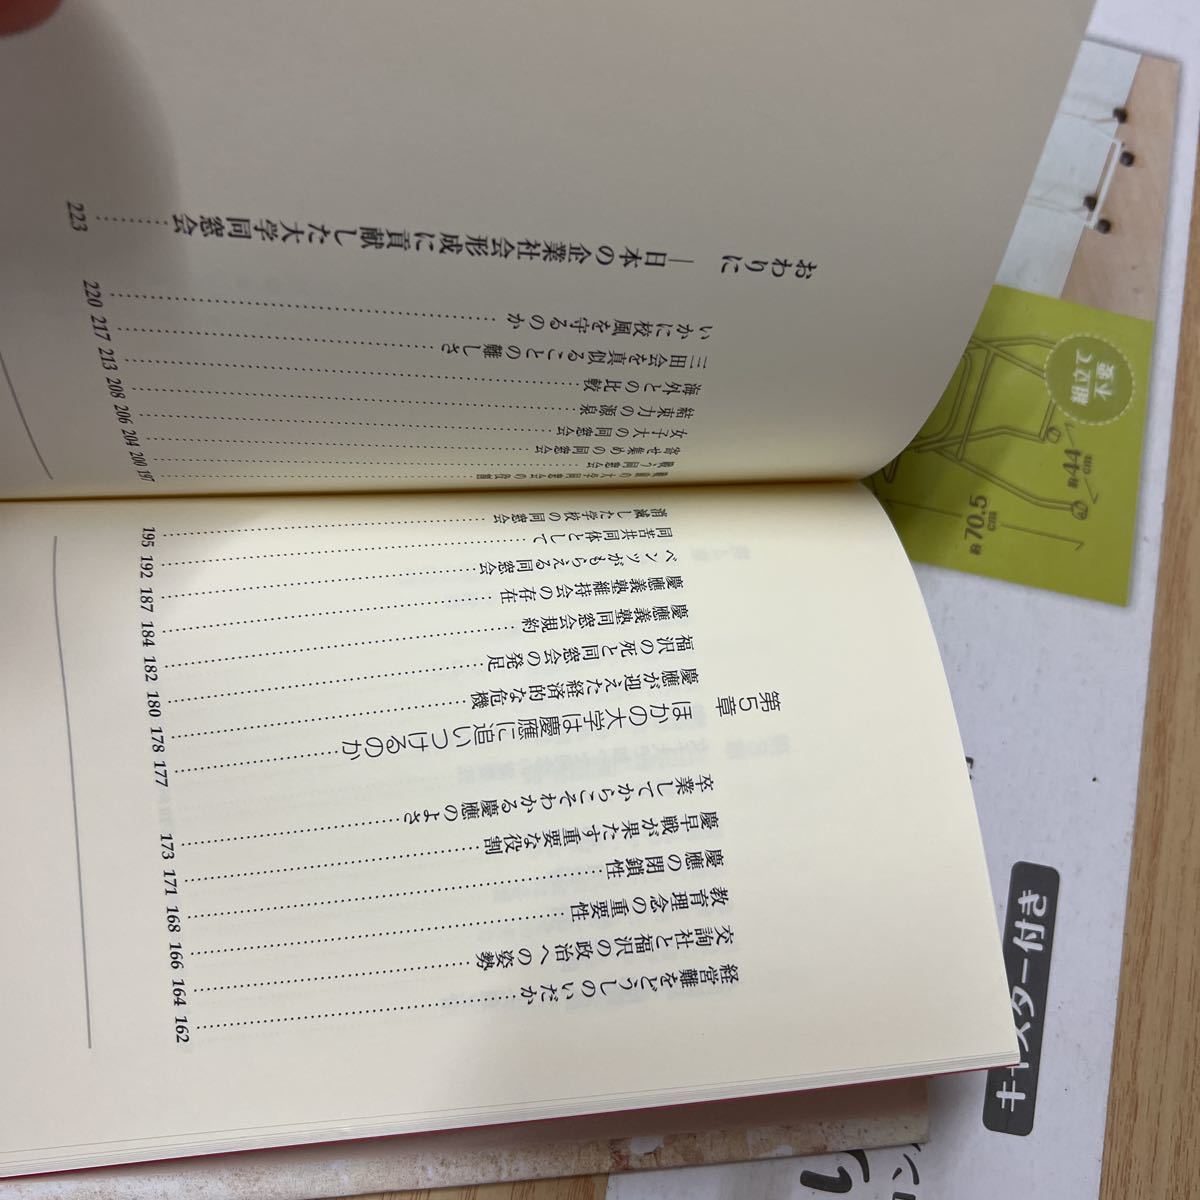 経営難をどうしのいだか……162
交詢社と福沢の政治への姿勢……164
教育理念の重要性……166
慶應の閉鎖性……168
慶早戦が果たす重要な役割……171
卒業してからこそわかる慶應のよさ……173
第5章 ほかの大学は慶應に追いつけるのか……177
慶應が迎えた経済的な危機……178
福沢の死と同窓会の発足……180
慶應義塾同窓会規約……182
慶應義塾維持会の存在……184
ベンツがもらえる同窓会……187
同苦共同体として……192
消滅した学校の同窓会……195
の大学同窓会の役割……197
同窓会……200
寄せ集めの同窓会……204
女子大の同窓会……206
結束力の源泉……208
海外との比較……213
三田会を真似ることの難しさ……217
いかに校風を守るのか……220
おわりに ―日本の企業社会形成に貢献した大学同窓会……223
組立て
不要
約44cm
約70.5cm
キャスター付き